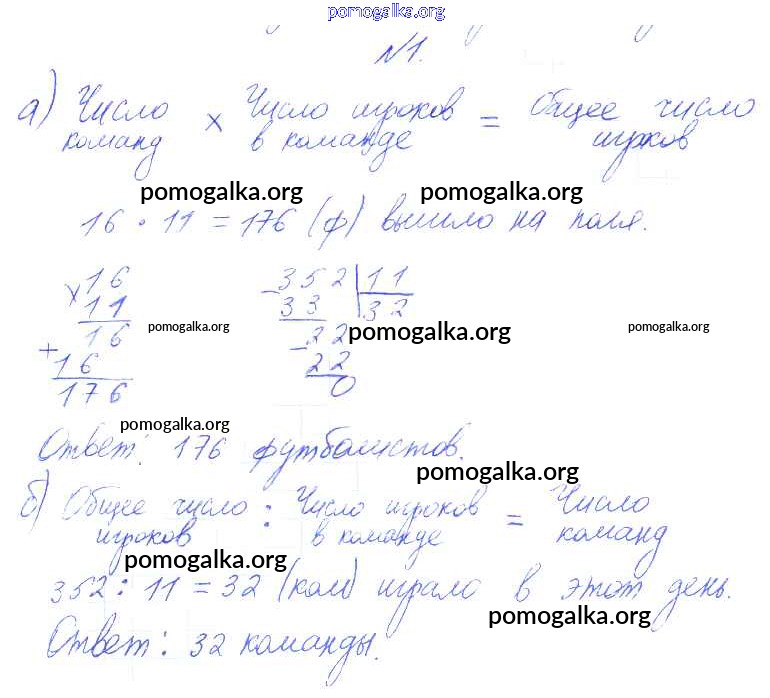 pomogalka.org
№1.
а) Число команд × Число игроков в команде = Общее число игроков
pomogalka.org pomogalka.org
16 · 11 = 176 (ф) вышло на поля.
× 16 − 352 | 11
11 33 32
16 pomogalka.org − 22 pomogalka.org pomogalka.org
+ 16 22
176 0
pomogalka.org
Ответ: 176 футболистов.
pomogalka.org
б) Общее число игроков : Число игроков в команде = Число команд
pomogalka.org
352 : 11 = 32 (ком) играло в этот день.
pomogalka.org
Ответ: 32 команды.